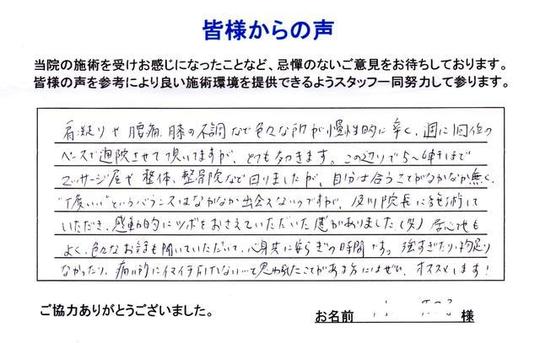 皆様からの声
当院の施術を受けお感じになったことなど、忌憚のないご意見をお待ちしております。
皆様の声を参考により良い施術環境を提供できるようスタッフ一同努力して参ります。
肩凝りや腰痛、膝の不調など色々な所が慢性的に辛く、週に1回位の
ペースで通院させて頂いてますが、とても落つきます。この辺りで5〜6軒ほど
マッサージ屋や整体、整骨院など回りましたが、自分に合うさどがなかなか無く、
"丁度いい"というバランスはなかなか出会えないのですが、及川院長に施術して
いただき、感動的にツボをおさえていただいた感がありました(笑) 居心地も
よく、色々なお話も聞いていただいて、心身共に安らぎの時間です。強すぎたり、物足り
なかったり、痛い所にイマイチ届かない…って思われたことがある方にはぜひ、オススメします!
ご協力ありがとうございました。
お名前 様